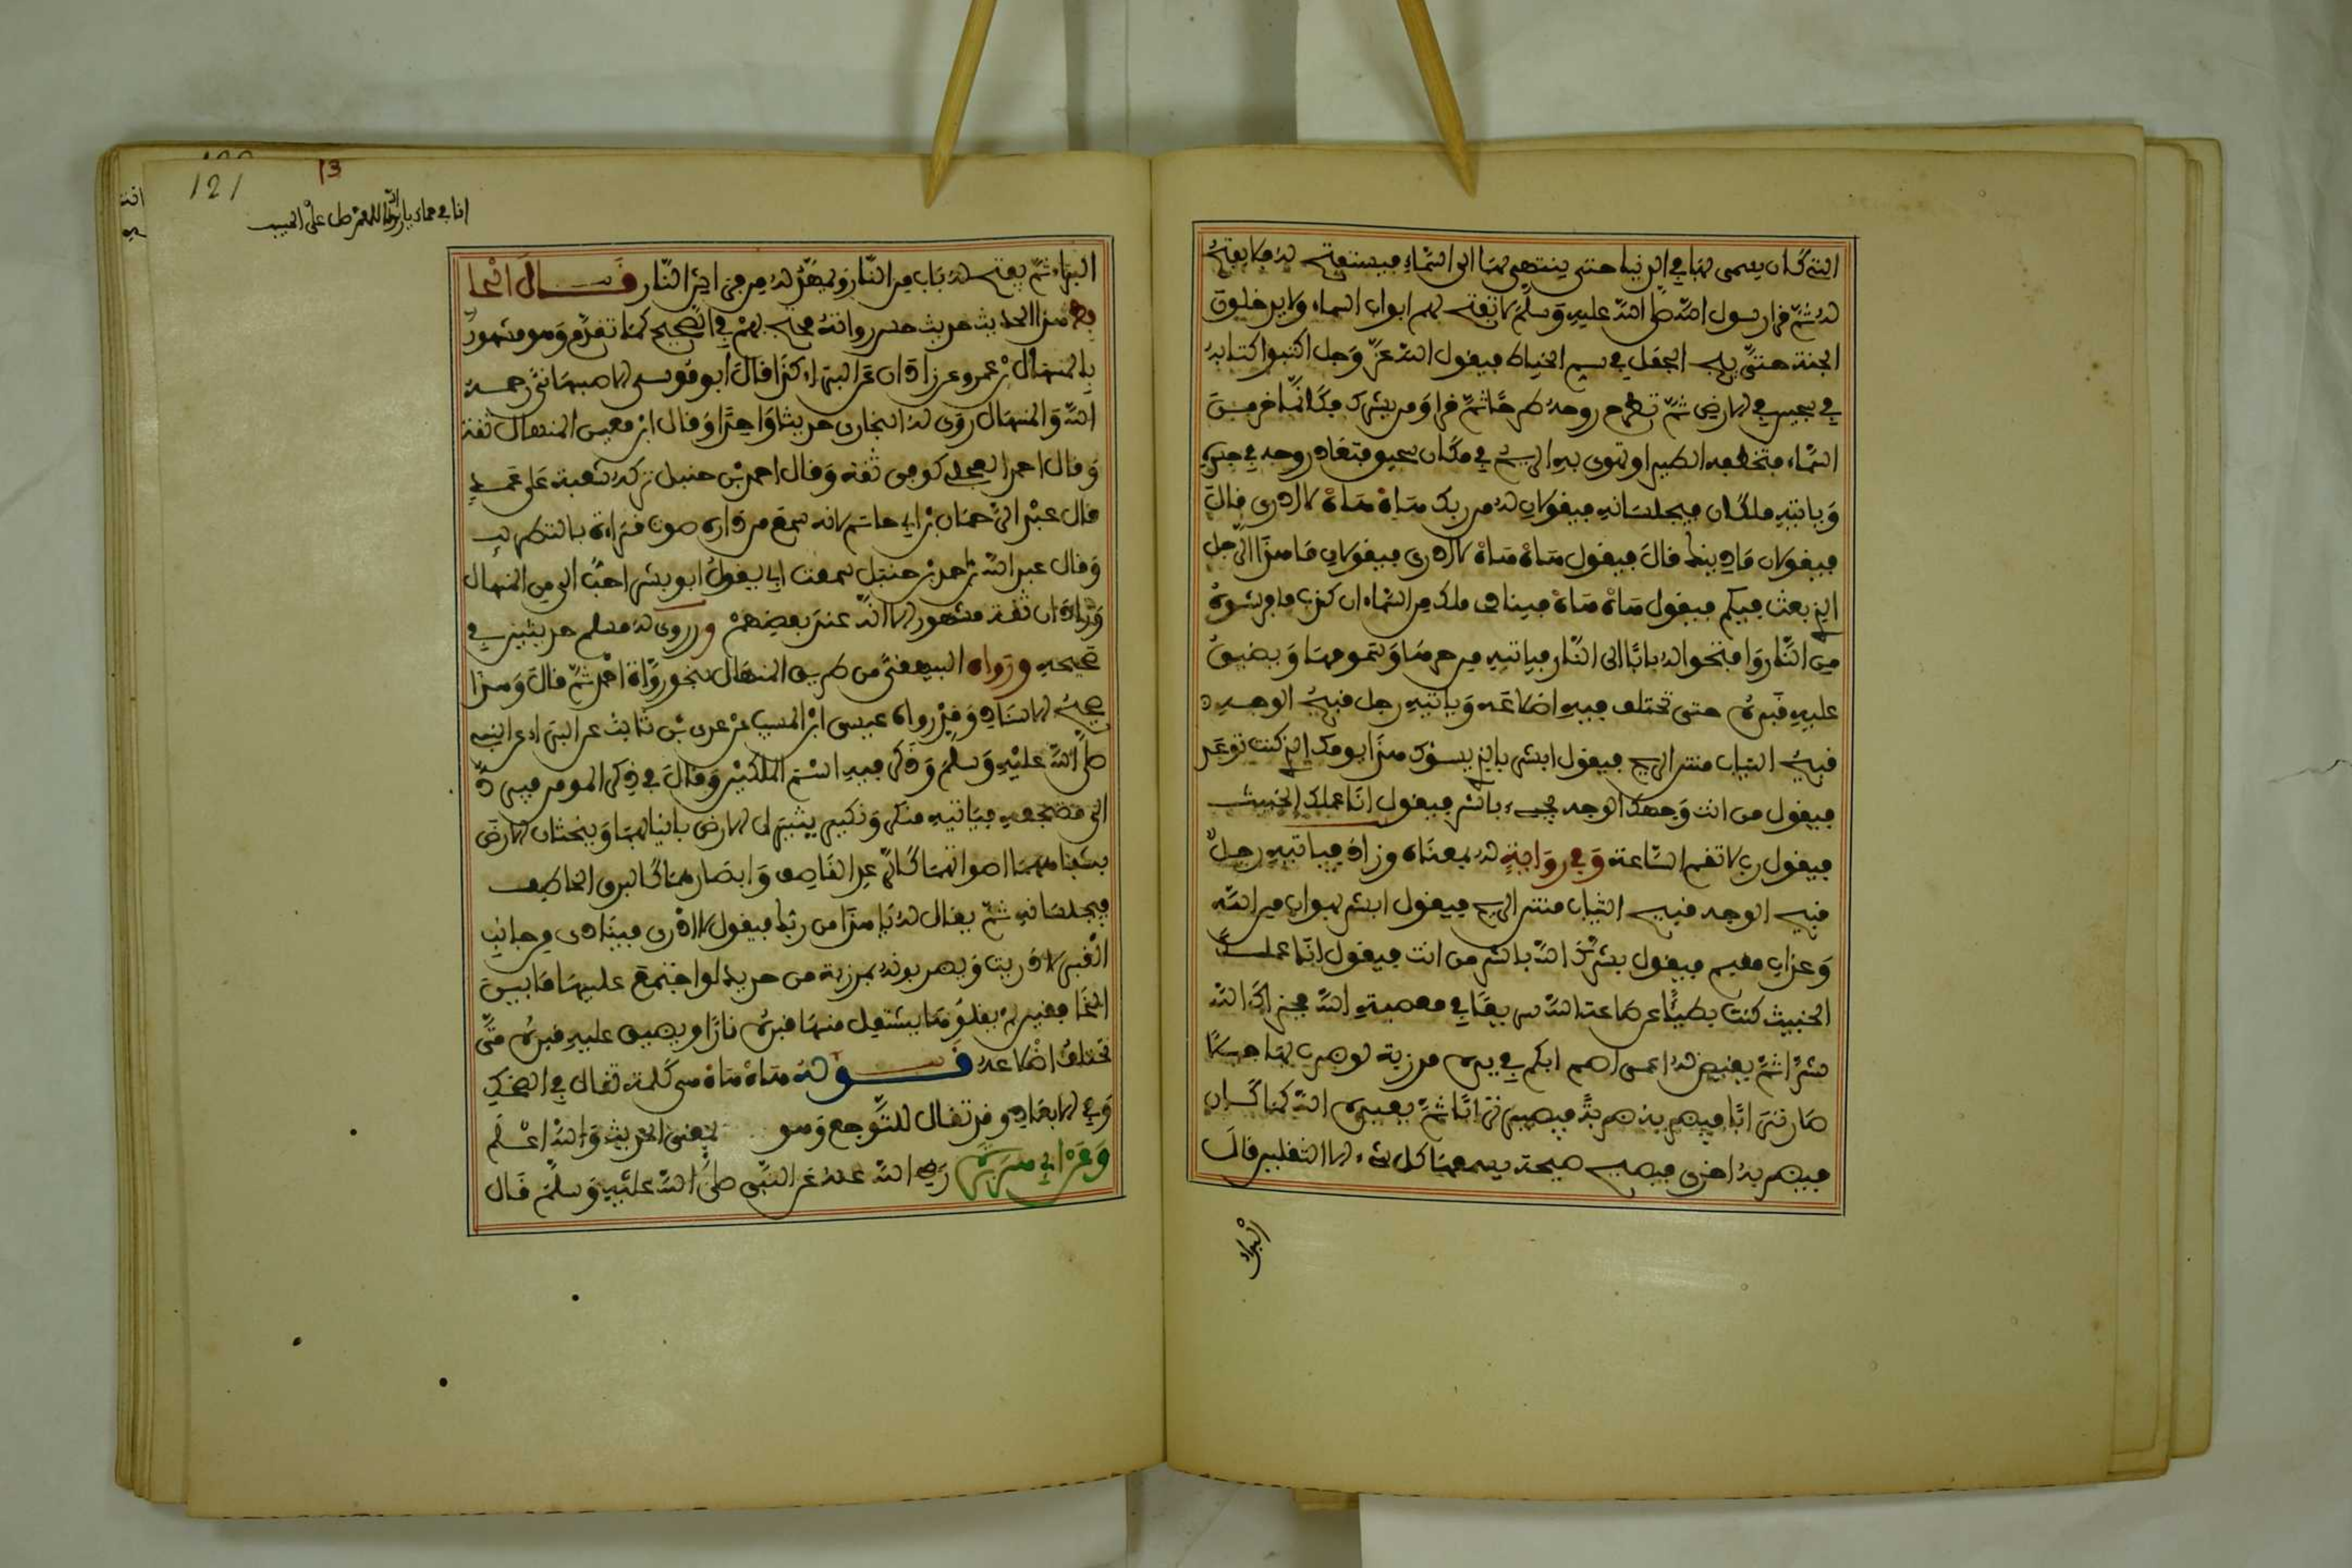 التي كان يسمى بها في الدنيا حتى ينتهي بها الى السماء فيستفتح له فلا يفتح
له ثم قرا رسول الله صلى الله عليه وسلم لا تفتح لهم ابواب السماء ولا يدخلون
الجنة حتى يلج الجمل في سم الخياط فيقول الله عز وجل اكتبوا كتابه
في سجين في الارض ثم تطرح روحه طرحا ثم قرا ومن يشرك فكانما خر من
السماء فتخطفه الطير او تهوى به الريح في مكان سحيق فتعاد روحه في جسده
وياتيه ملكان فيجلسانه فيقولان له من ربك هاه هاه لا ادرى قال
فيقولان ما دينك قال فيقول هاه هاه لا ادرى فيقولان ما هذا الرجل
الذي بعث فيكم فيقول هاه هاه فينادى ملك من السماء ان كذب فافرشوه
من النار وافتحوا له بابا الى النار فياتيه من حرها وسمومها ويضيق
عليه قبره حتى تختلف فيه اضلاعه وياتيه رجل قبيح الوجه
قبيح الثياب منتن الريح فيقول ابشر بالذي يسوك هذا يومك الذي كنت توعد
فيقول من انت وجهك الوجه يجيء بالشر فيقول انا عملك الخبيث
فيقول رب لا تقم الساعة وفي رواية له بمعناه وزاد فياتيه رجل
قبيح الوجه قبيح الثياب منتن الريح فيقول ابشر بهوان من الله
وعذاب مقيم فيقول بشرك الله بالشر من انت فيقول انا عملك
الخبيث كنت بطيئا عن طاعة الله سريعا في معصية الله فجزاك الله
شرا ثم يقيض له اعمى اصم ابكم في يده مرزبة لو ضرب بها جبلا
صار ترابا فيضربه ضربة فيصير ترابا ثم يعيده الله كما كان
فيضربه اخرى فيصيح صيحة يسمعها كل شيء الا الثقلين قال
البراء
121
13
البراء ثم يفتح له باب من النار ويمهد له من فرش النار قال الحا
فظ هذا الحديث حديث حسن رواته محتج بهم في الصحيح كما تقدم وهو مشهور
بالمنهال بن عمرو عن زاذان عن البراء كذا قال ابو موسى الاصبهاني رحمه
الله والمنهال روى له البخارى حديثا واحدا وقال ابن معين المنهال ثقة
وقال احمد العجلي كوفي ثقة وقال احمد بن حنبل تركه شعبة على عمد
قال عبد الرحمان بن ابي حاتم لانه سمع من داره صوت قراءة بالتطريب
وقال عبد الله بن احمد بن حنبل سمعت ابي يقول ابو بشر احب الي من المنهال
وزاذان ثقة مشهور الانه عند بعضهم وروى له مسلم حديثين في
صحيحه ورواه البيهقي من طريق المنهال بنحو رواة احمد ثم قال وهذا
صحيح الاسناد وقد رواه عيسى ابن المسيب عن عدى بن ثابت عن البراء عن النبي
صلى الله عليه وسلم وذكر فيه اسم الملكين وقال في ذكر المومن فيرد
الى مضجعه فياتيه منكر ونكير يثيران الارض بانيابهما وينحثان الارض
بشفاههما اصواتهما كالرعد القاصف وابصارهما كالبرق الخاطف
فيجلسانه ثم يقال له يا هذا من ربك فيقول لا ادرى فينادى من جانب
القبر لا دريت ويضربونه بمرزبة من حديد لو اجتمع عليها ما بين
الخافقين لم يقلوها يشتعل منها قبره نارا ويضيق عليه قبره حتى
تختلف اضلاعه قوله هاه هاه هي كلمة تقال في الضحك
وفي الابعاد وقد تقال للتوجع وهو يعني الحديث والله اعلم
وعن ابي هريرة رضي الله عنه عن النبي صلى الله عليه وسلم قال